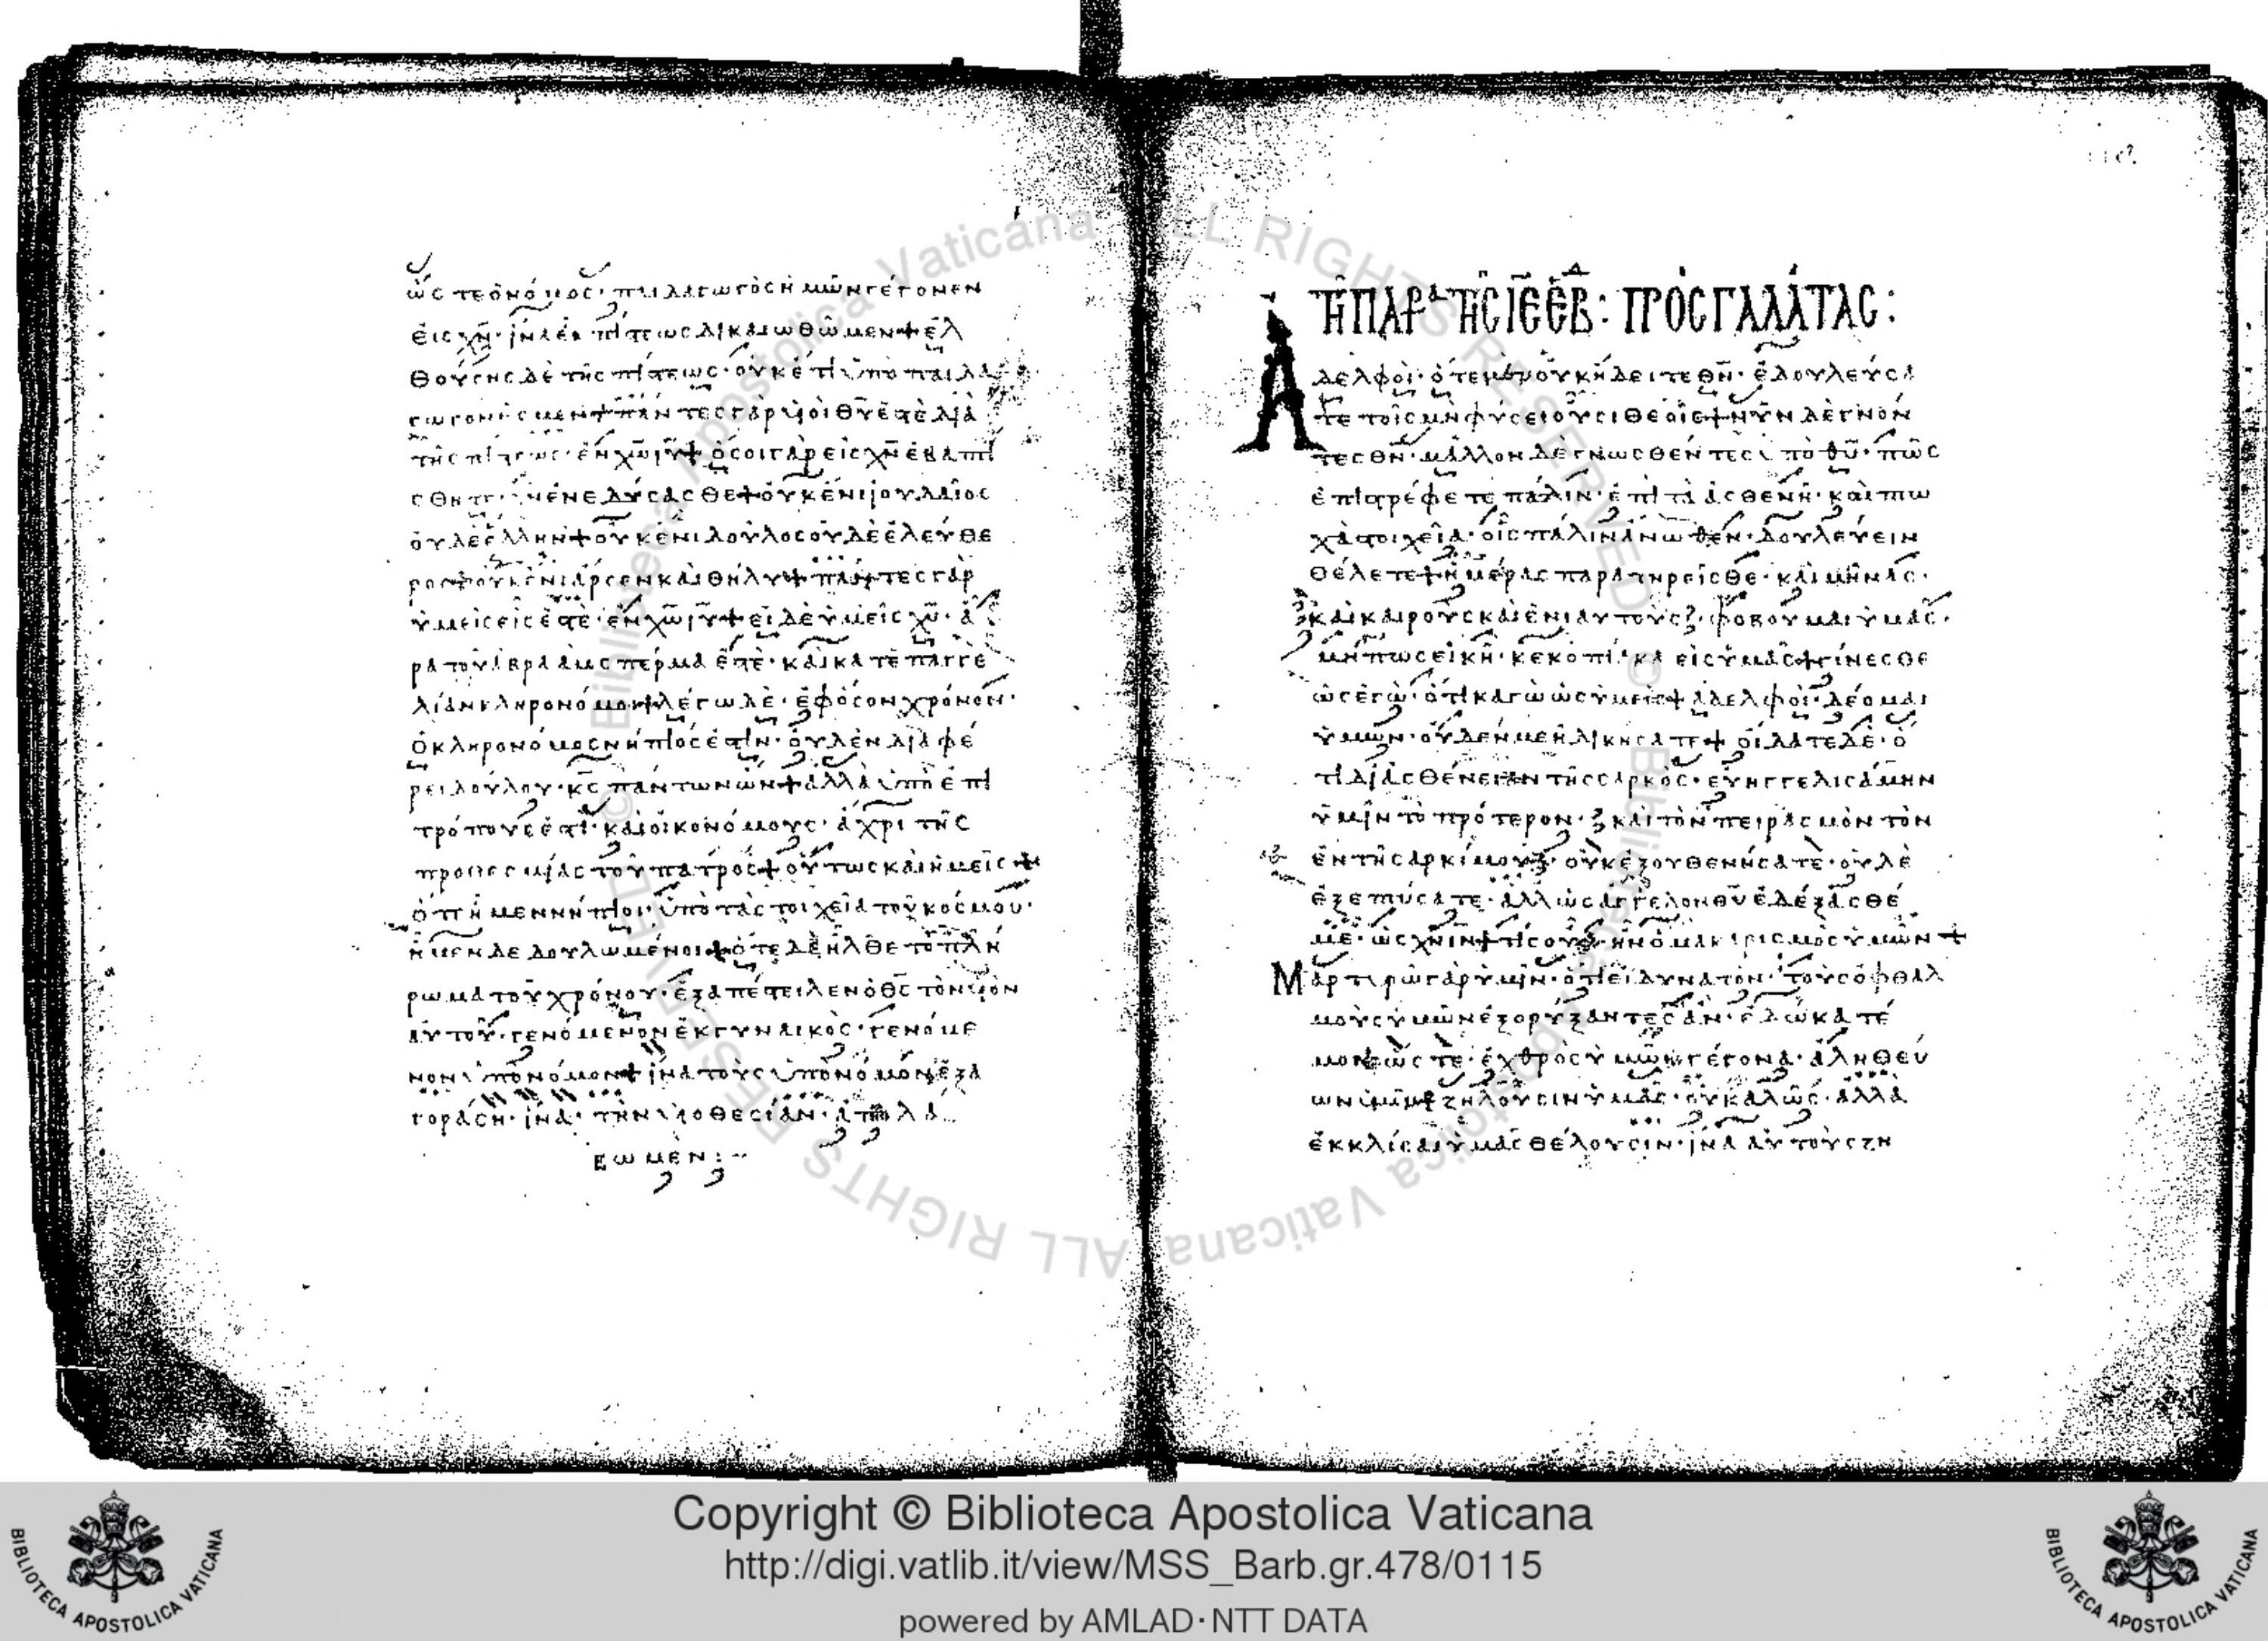 ὥς τε ὁ νόμος· παιδαγωγὸς ἡμῶν γέγονεν
εἰς χ̅ν̅· ἵνα ἐκ πίστεως δικαιωθῶμεν + ἐλ
θούσης δὲ τῆς πίστεως· οὐκέτι ὑπὸ παιδα
γωγόν ἐσμεν + πάντες γὰρ υἱοὶ θ̅υ̅ ἐστὲ διὰ
τῆς πίστεως· ἐν χ̅ω̅ ι̅υ̅ + ὅσοι γὰρ εἰς χ̅ν̅ ἐβαπτί
σθητε· χ̅ν̅ ἐνεδύσασθε + οὐκ ἔνι ἰουδαῖος
οὐδὲ ἕλλην + οὐκ ἔνι δοῦλος οὐδὲ ἐλεύθε
ρος + οὐκ ἔνι ἄρσεν καὶ θῆλυ + πάντες γὰρ
ὑμεῖς εἷς ἐστὲ· ἐν χ̅ω̅ ι̅υ̅ + εἰ δὲ ὑμεῖς χ̅υ̅· ἄ
ρα τοῦ ἀβραὰμ σπέρμα ἐστὲ· καὶ κατ' ἐπαγγε
λίαν κληρονόμοι + λέγω δὲ· ἐφ' ὅσον χρόνον·
ὁ κληρονόμος νήπιός ἐστιν· οὐδὲν διαφέ
ρει δούλου· κ̅ς̅ πάντων ὢν + ἀλλὰ ὑπὸ ἐπι
τρόπους ἐστὶ· καὶ οἰκονόμους· ἄχρι τῆς
προθεσμίας τοῦ πατρός + οὕτως καὶ ἡμεῖς +
ὅτι ἦμεν νήπιοι· ὑπὸ τὰ στοιχεῖα τοῦ κόσμου·
ἦμεν δεδουλωμένοι + ὅτε δὲ ἦλθε τὸ πλή
ρωμα τοῦ χρόνου· ἐξαπέστειλεν ὁ θ̅ς̅ τὸν υἱὸν
αὐτοῦ· γενόμενον ἐκ γυναικός· γενόμε
νον ὑπὸ νόμον + ἵνα τοὺς ὑπὸ νόμον ἐξα
γοράσῃ· ἵνα· τὴν υἱοθεσίαν· ἀπολά
βωμεν :
ΤΗ ΠΑΡΑ ΤΗΣ ΙΕ ΕΒΔ : ΠΡΟΣ ΓΑΛΑΤΑΣ :
Ἀδελφοί· ὅτε μὲν οὐκ ᾔδειτε θ̅ν̅· ἐδουλεύσα
τε τοῖς μὴ φύσει οὖσι θεοῖς + νῦν δὲ γνόν
τες θ̅ν̅· μᾶλλον δὲ γνωσθέντες ὑπὸ θ̅υ̅· πῶς
ἐπιστρέφετε πάλιν· ἐπὶ τὰ ἀσθενῆ· καὶ πτω
χὰ στοιχεῖα· οἷς πάλιν ἄνωθεν· δουλεύειν
θέλετε + ἡμέρας παρατηρεῖσθε· καὶ μῆνας·
καὶ καιροὺς καὶ ἐνιαυτούς· φοβοῦμαι ὑμᾶς·
μήπως εἰκῆ· κεκοπίακα εἰς ὑμᾶς + γίνεσθε
ὡς ἐγώ· ὅτι κἀγὼ ὡς ὑμεῖς + ἀδελφοί· δέομαι
ὑμῶν· οὐδέν με ἠδικήσατε + οἴδατε δὲ· ὅ
τι δι' ἀσθένειαν τῆς σαρκός· εὐηγγελισάμην
ὑμῖν τὸ πρότερον· καὶ τὸν πειρασμὸν τὸν
ἐν τῇ σαρκί μου· οὐκ ἐξουθενήσατε· οὐδὲ
ἐξεπτύσατε· ἀλλ' ὡς ἄγγελον θ̅υ̅ ἐδέξασθέ
με· ὡς χ̅ν̅ ι̅ν̅ + τίς οὖν ἦν ὁ μακαρισμὸς ὑμῶν +
Μαρτυρῶ γὰρ ὑμῖν· ὅτι εἰ δυνατόν· τοὺς ὀφθαλ
μοὺς ὑμῶν ἐξορύξαντες ἂν· ἐδώκατέ
μοι + ὥς τε· ἐχθρὸς ὑμῶν γέγονα· ἀληθεύ
ων ὑμῖν + ζηλοῦσιν ὑμᾶς· οὐ καλῶς· ἀλλὰ
ἐκκλῖσαι ὑμᾶς θέλουσιν· ἵνα αὐτοὺς ζη
Copyright © Biblioteca Apostolica Vaticana
http://digi.vatlib.it/view/MSS_Barb.gr.478/0115
powered by AMLAD·NTT DATA